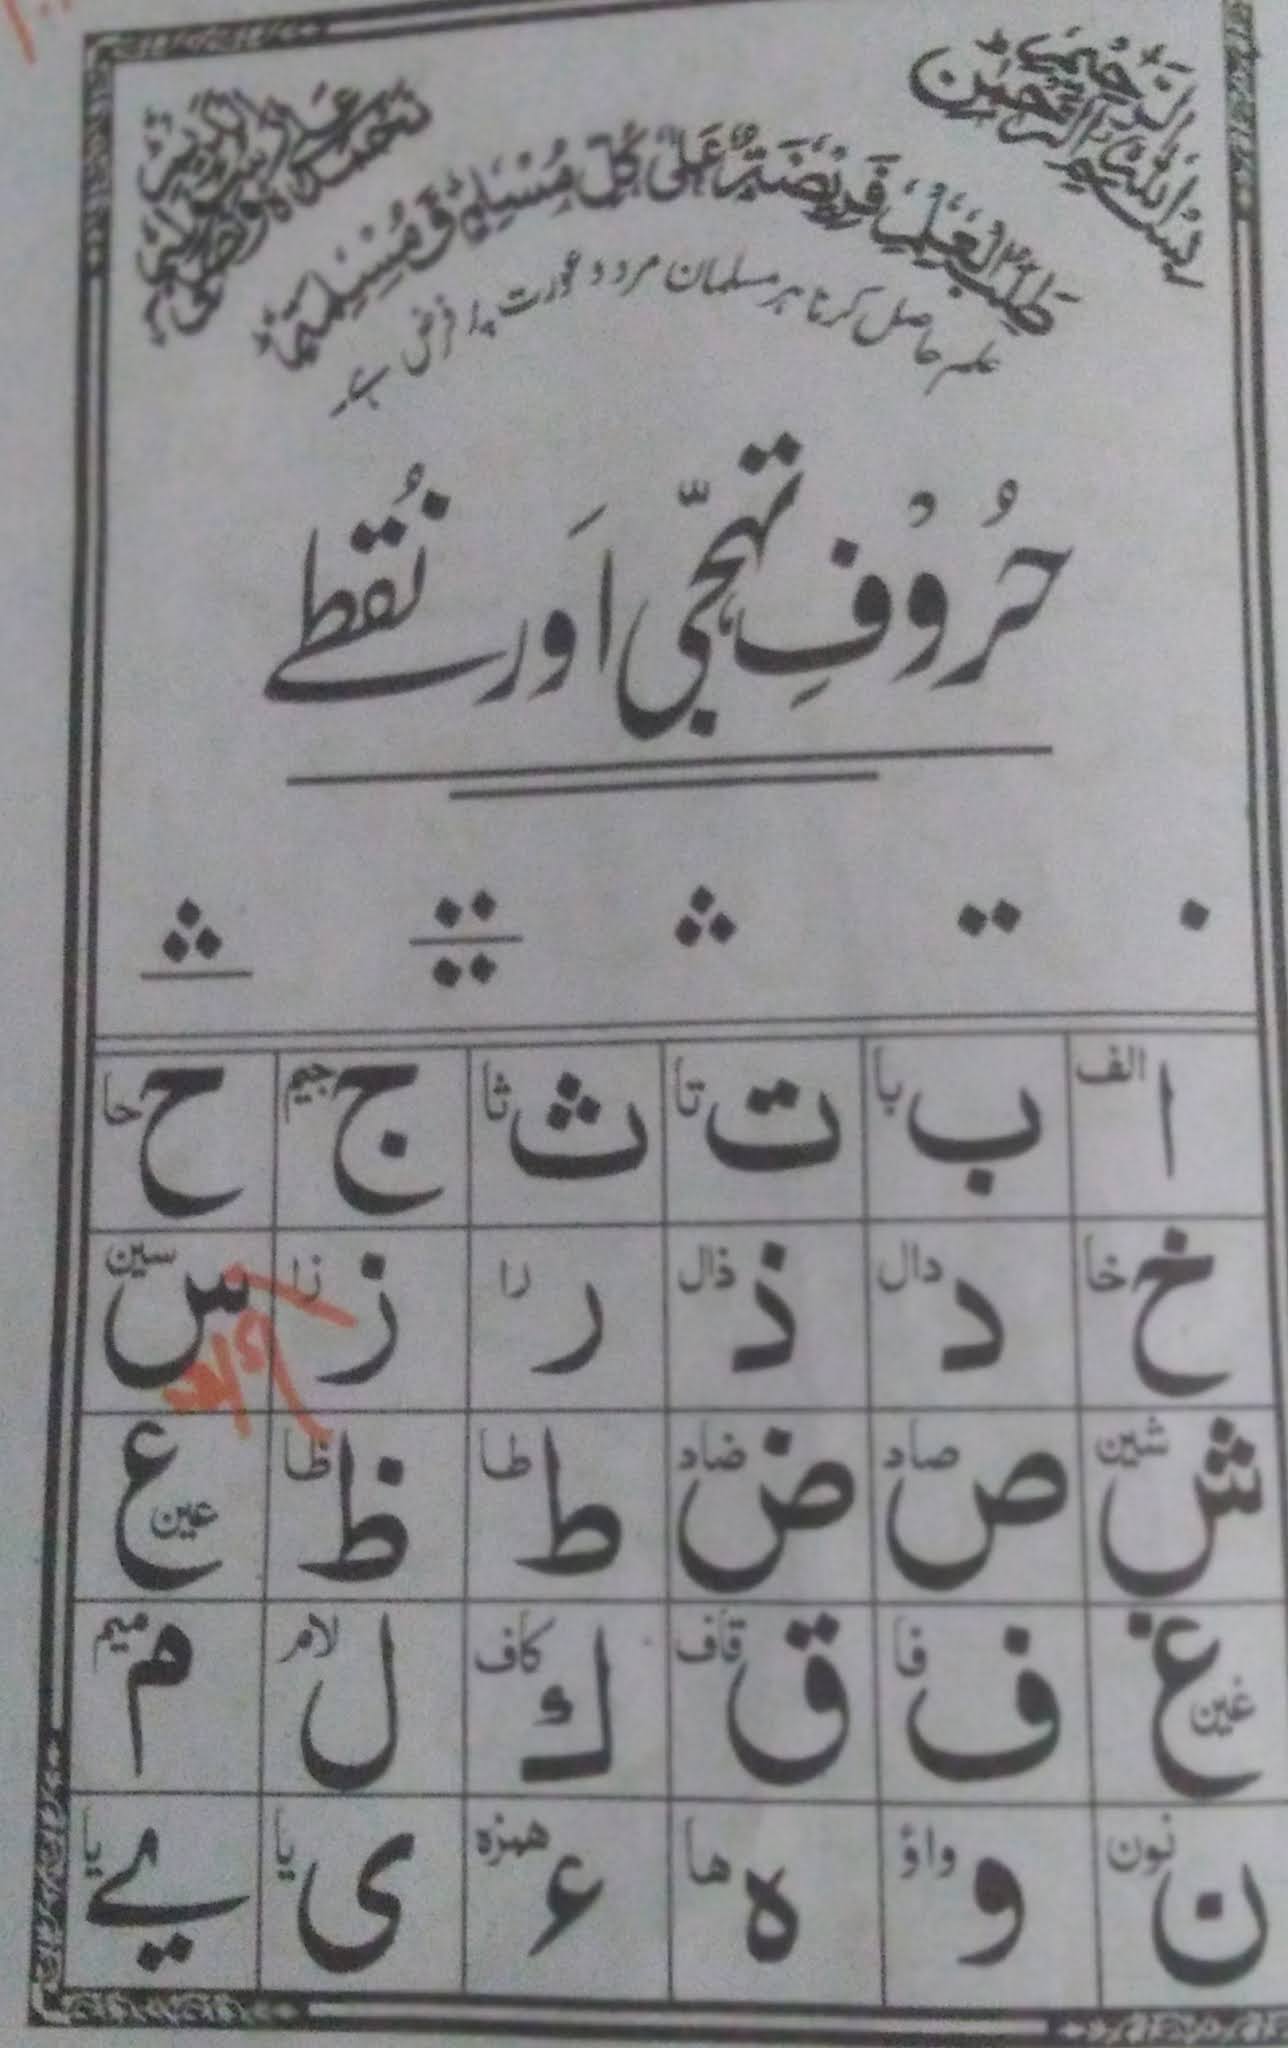 بِسْمِ اللهِ الرَّحْمٰنِ الرَّحِيْمِ
نَحْمَدُهٗ وَنُصَلِّيْ عَلٰى رَسُوْلِهِ الْكَرِيْمِ
طَلَبُ الْعِلْمِ فَرِيْضَةٌ عَلٰى كُلِّ مُسْلِمٍ وَّ مُسْلِمَةٍ
علم حاصل کرنا ہر مسلمان مرد و عورت پر فرض ہے۔
حُرُوْفِ تہجّی اَور نُقطے
ا الف ب با ت تا ث ثا ج جیم ح حا
خ خا د دال ذ ذال ر را ز زا س سین
ش شین ص صاد ض ضاد ط طا ظ ظا ع عین
غ غین ف فا ق قاف ك کاف ل لام م میم
ن نون و واؤ ہ ھا ء ھمزہ ی یا ے یا